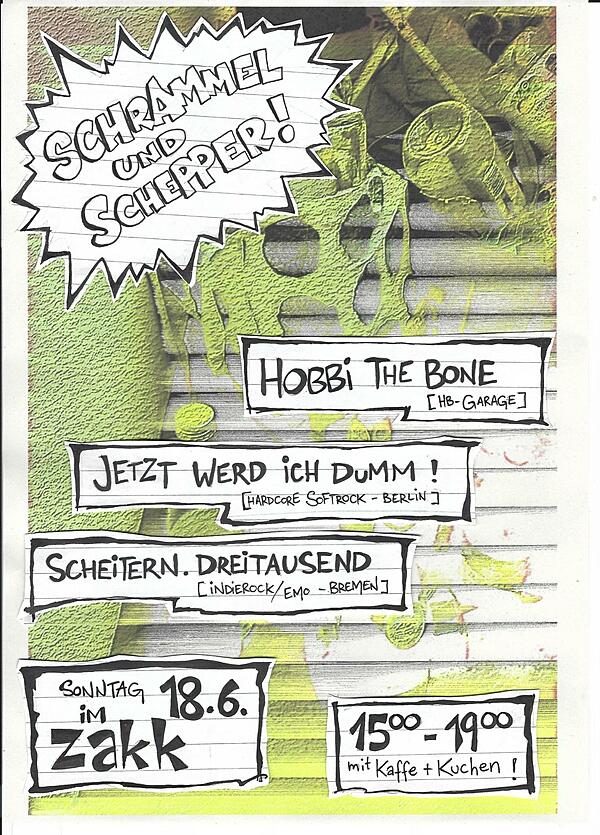 SCHRAMMEL
UND
SCHEPPER!
HOBBi THE BONE
[HB-GARAGE]
JETZT WERD iCH DUMM !
[HARDCORE SOFTROCK - BERLiN]
SCHEiTERN. DREITAUSEND
[iNDiEROCK/EMO - BREMEN]
SONNTAG 18.6.
iM
zakk
15⁰⁰ - 19⁰⁰
mit Kaffe + Kuchen !